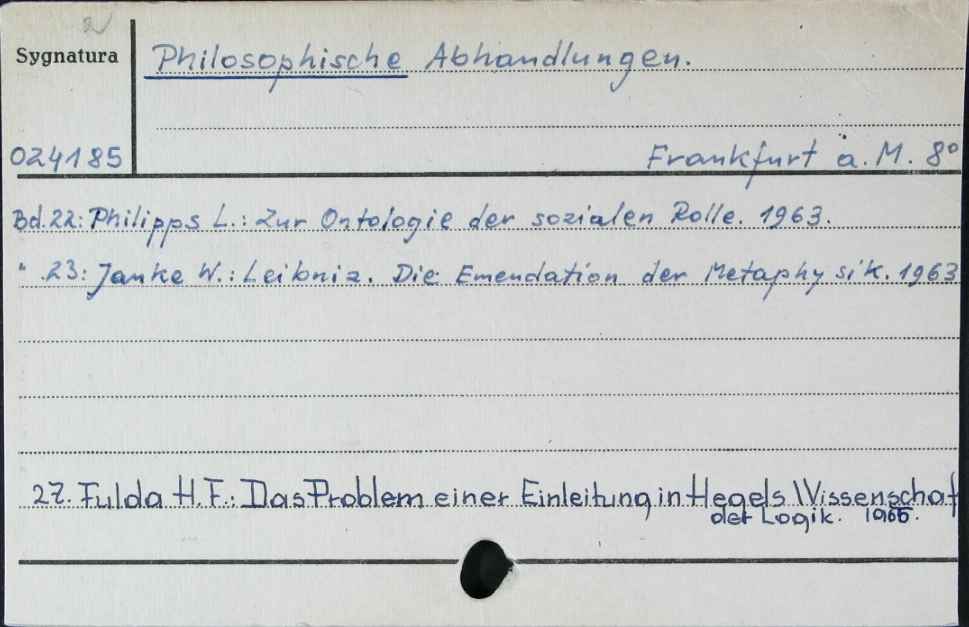 2
Sygnatura
Philosophische Abhandlungen.
024185
Frankfurt a. M. 8°
Bd.22: Philipps L.: Zur Ontologie der sozialen Rolle. 1963.
" 23: Janke W.: Leibniz. Die Emendation der Metaphysik. 1963
27. Fulda H.F.: Das Problem einer Einleitung in Hegels Wissenschaf
der Logik. 1965.